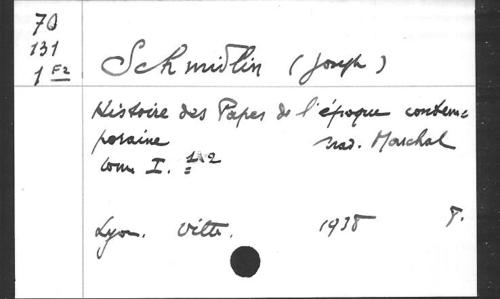 70
131
1 F2
Schmidlin (Joseph)
Histoire des Papes de l'époque contem-
poraine trad. Marchal
tom I. 1-2
Lyon. Vitte. 1938 8.